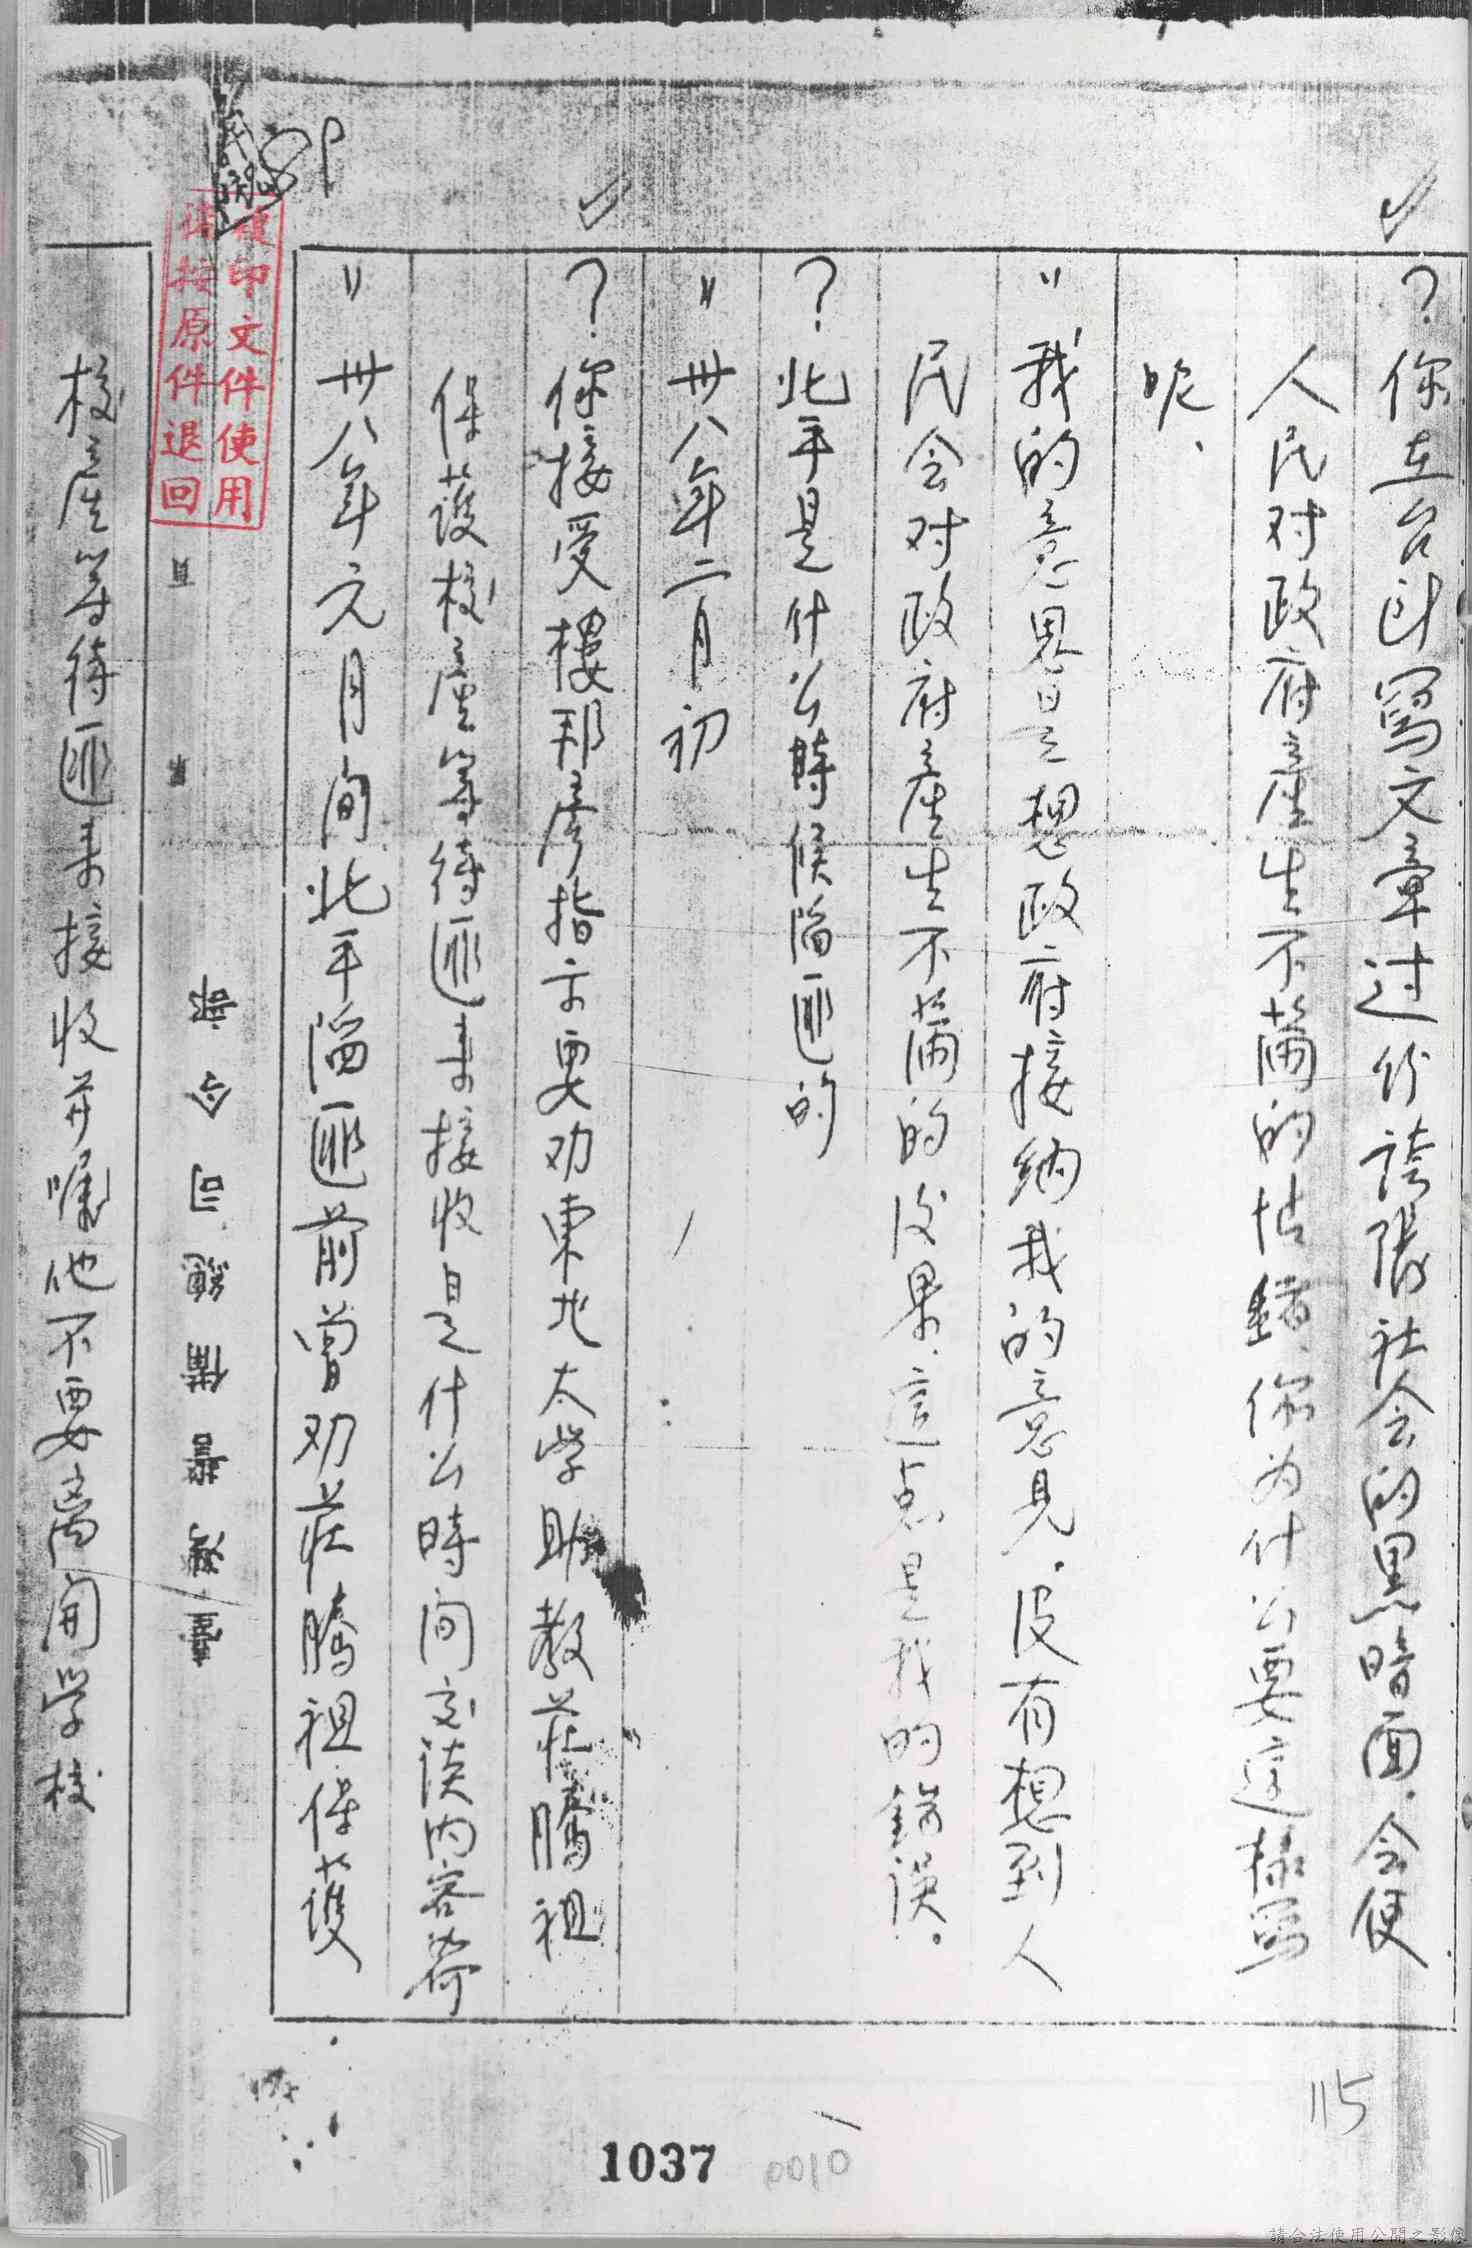 ?你在台北寫文章过份誇張社会的黑暗面.会使
人民对政府產生不滿的情緒、你为什么要這樣寫
呢、
〃我的意思是想政府接納我的意見.沒有想到人
民会对政府產生不滿的後果.這点是我的錯误。
?北平是什么時候陷匪的
〃卅八年二月初
?你接受樓邦彥指示要劝東北大学助教莊騰祖
保護校產等待匪來接收是什么時间交谈内容等
〃卅八年元月间北平陷匪前曾劝莊騰祖保護
臺灣警備總司令部
複印文件使用
請按原件退回
頁
校產等待匪來接收并囑他不要离開学校
115
1037
0010
請合法使用公開之影像